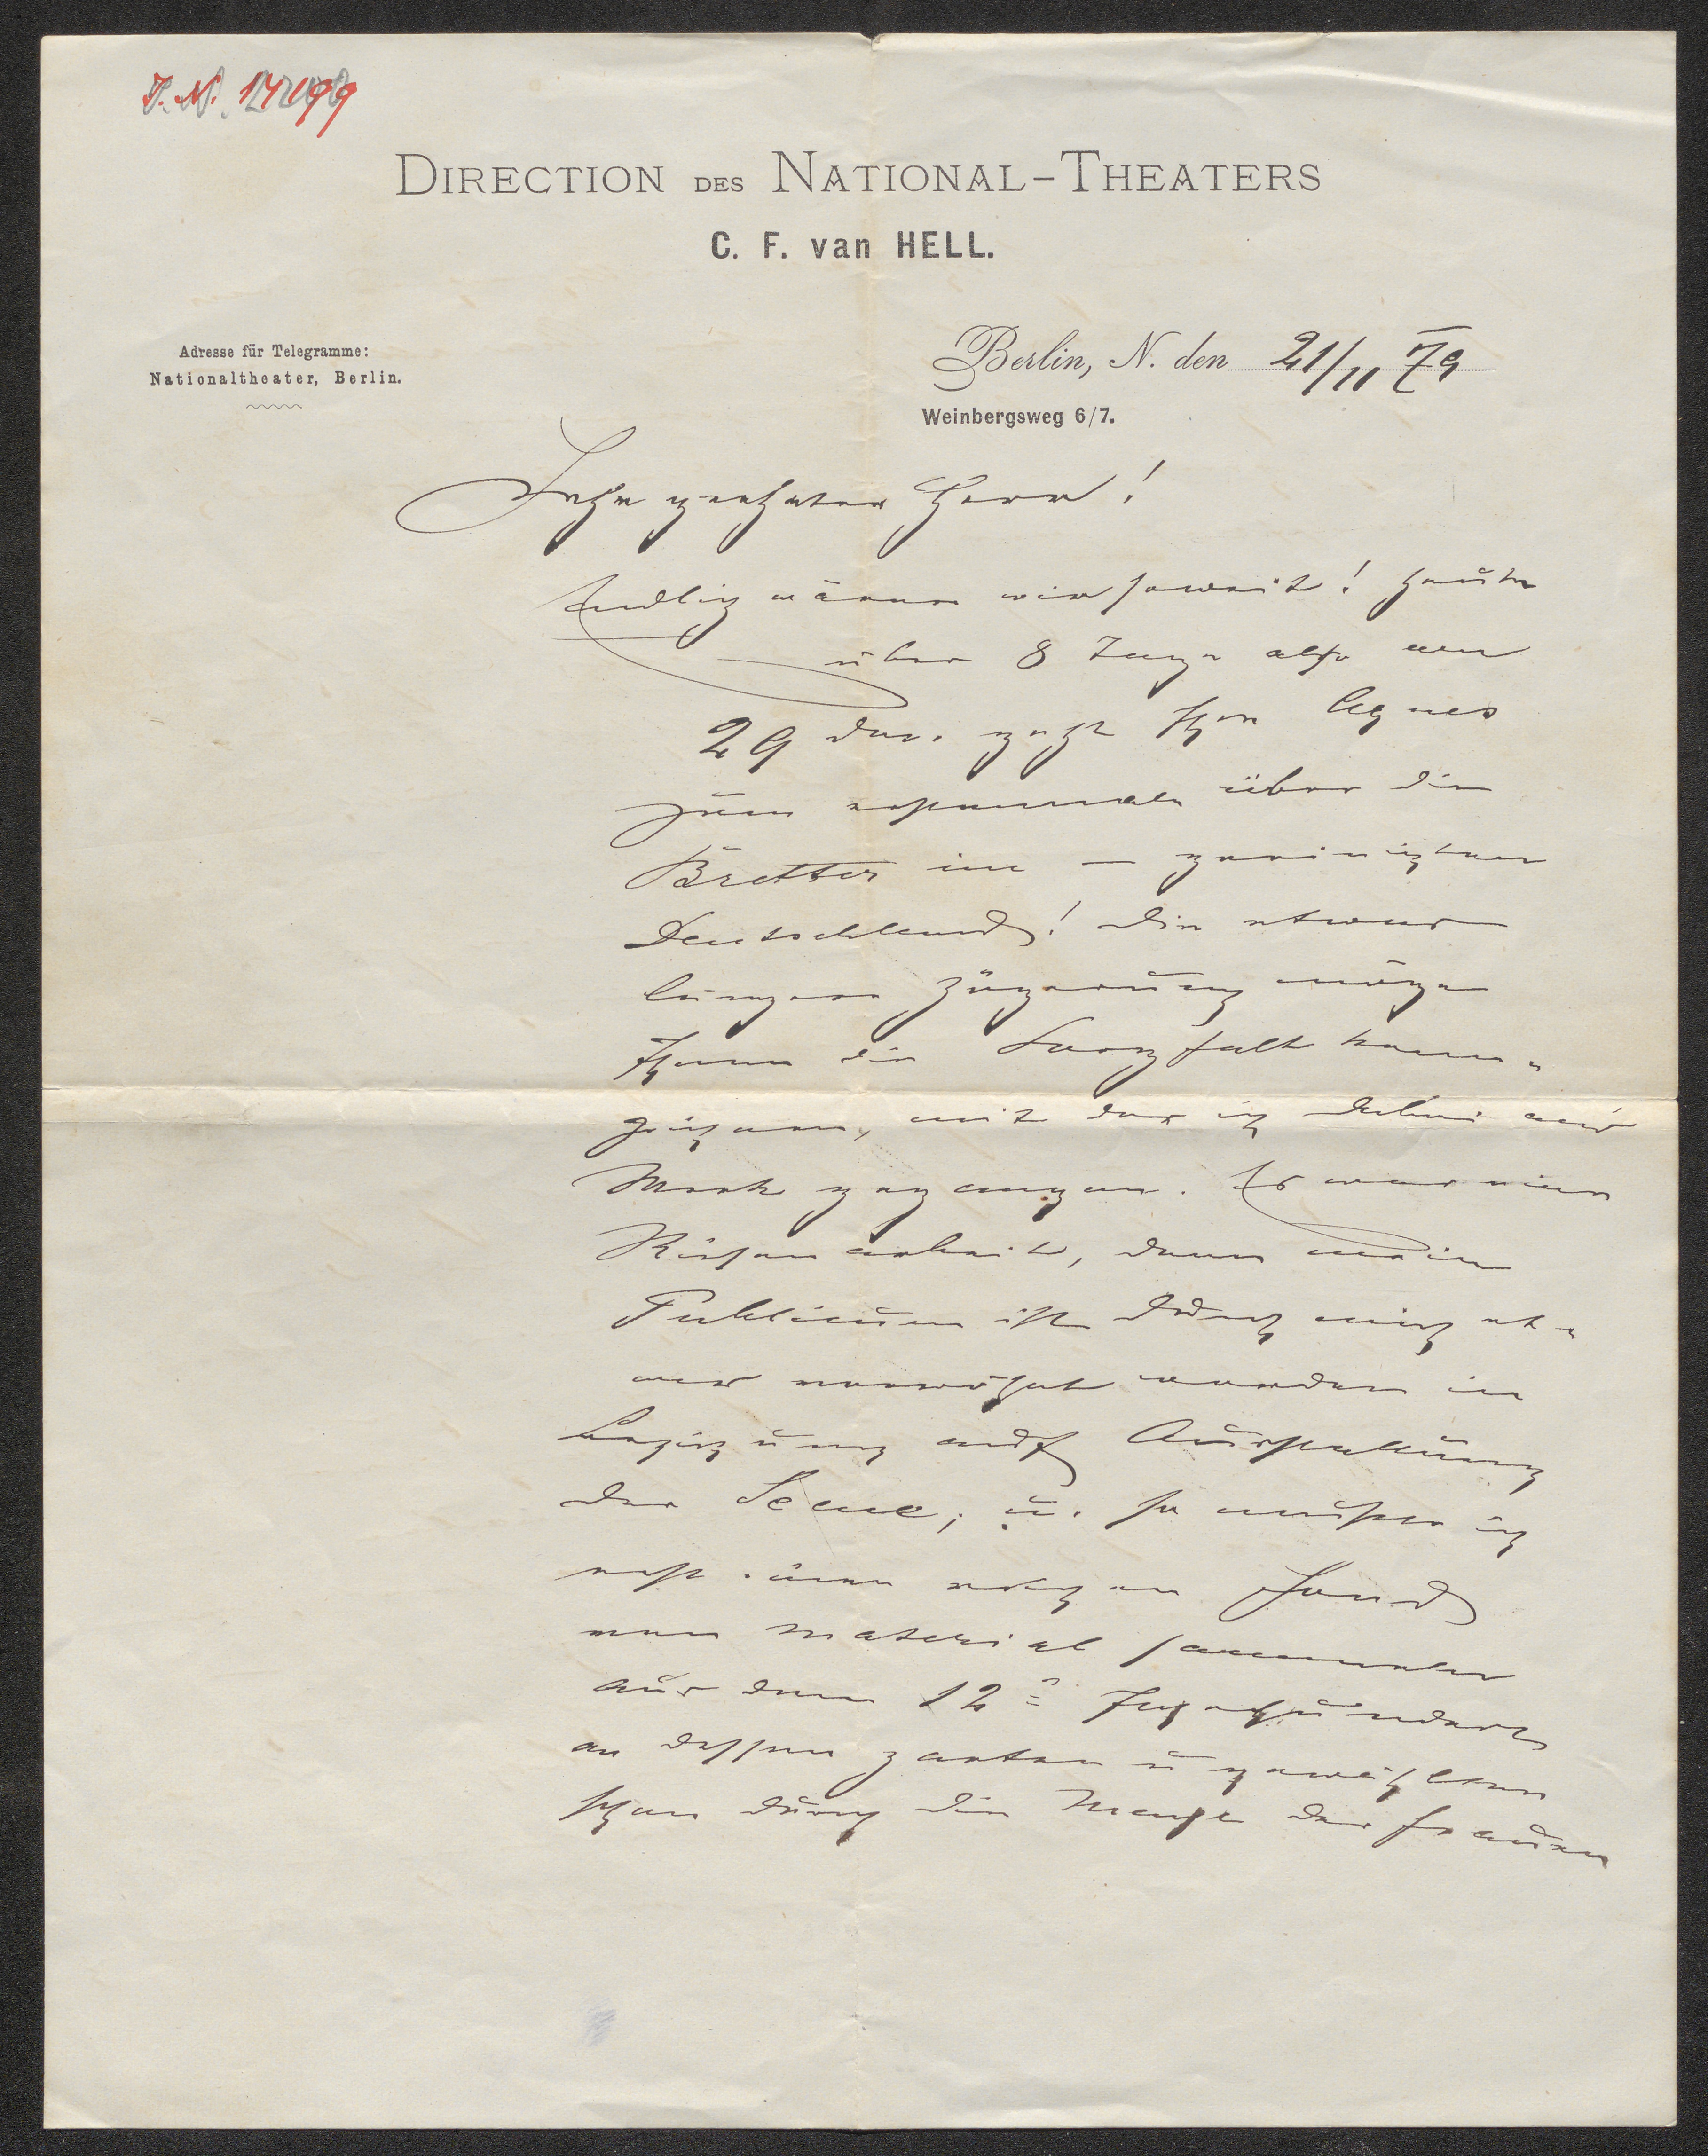 I. N. 17199
DIRECTION DES NATIONAL-THEATERS
C. F. van HELL.
Adresse für Telegramme:
Nationaltheater, Berlin.
Berlin, N. den 21/11 79
Weinbergsweg 6/7.
Sehr geehrter Herr!
Endlich wären wir soweit! Heute
über 8 Tage also am
29 dss. geht Ihre Agnes
zum erstenmale über die
Bretter im — geeinigten
Deutschland! Die etwas
längere Zögerung möge
Ihnen die Sorgfalt kenn-
zeichnen, mit der ich dabei an's
Werk gegangen. Es war eine
Riesenarbeit, denn mein
Publicum ist durch mich et-
was verwöhnt worden in
Beziehung auf Ausstattung
der Scene; u. so mußte ich
erst einen ... Fond
von Material sammeln
aus dem 12= Jahrhundert
an dessen zarten u gewählten
schon durch die Menge der Frauen